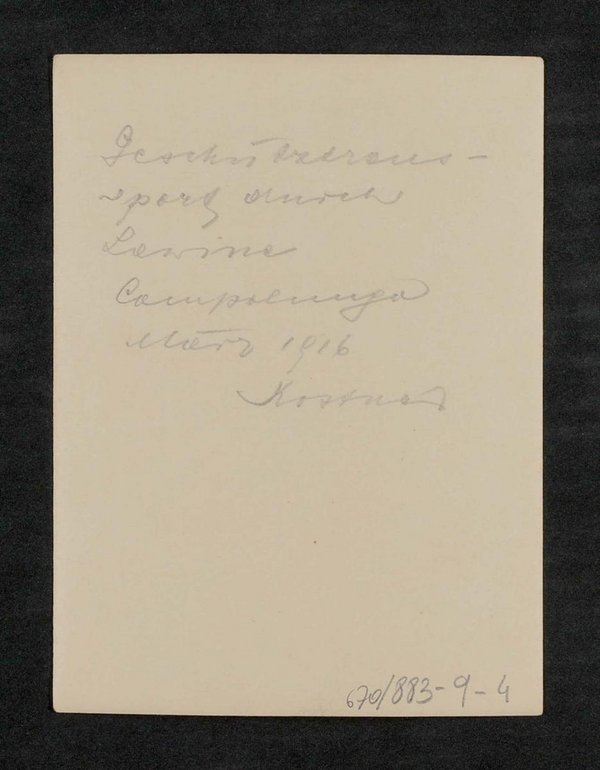 Geschütztrans-
port durch
Lawine
Campolungo
März 1916
Kostner
670/883-9-4